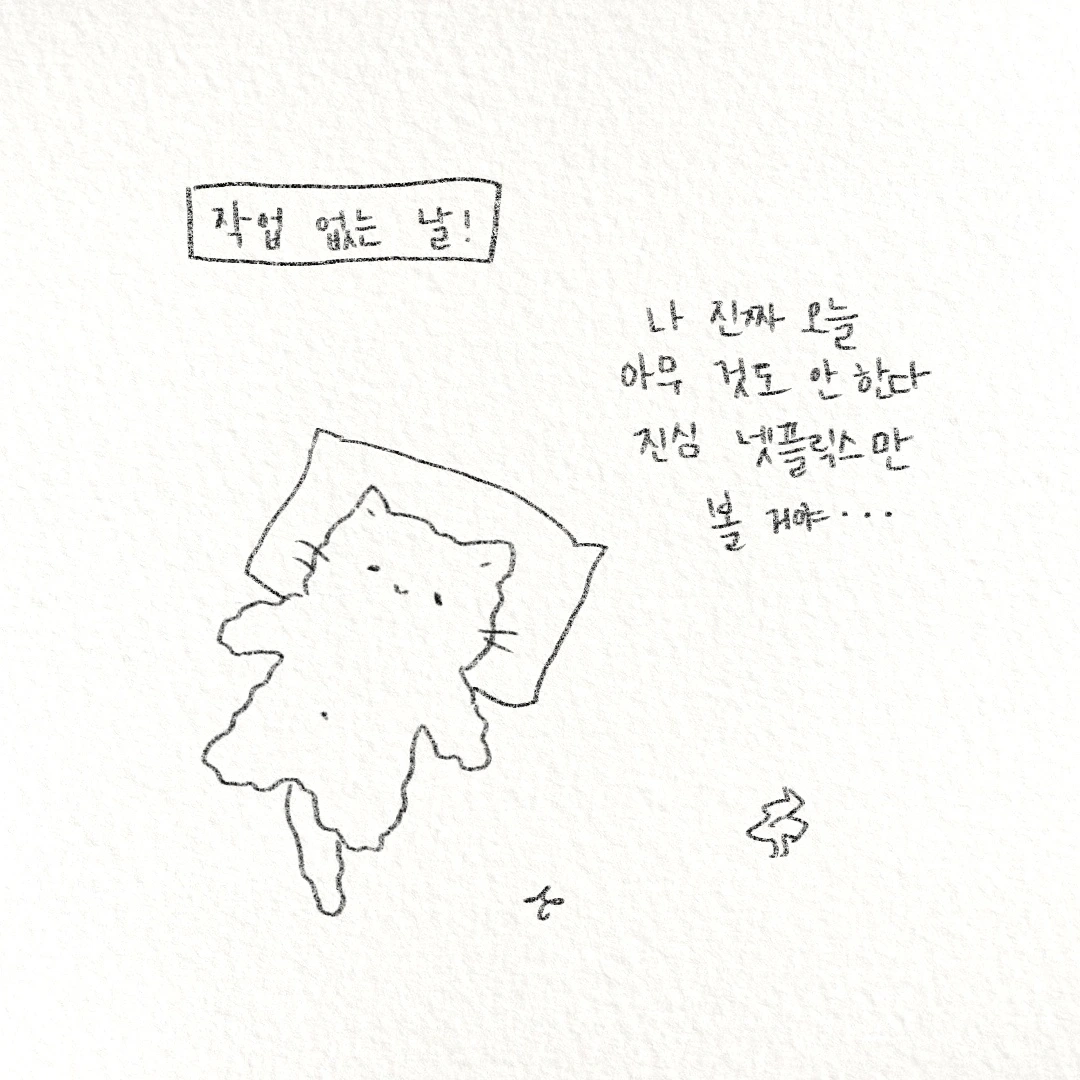 작업 없는 날!
나 진짜 오늘
아무 것도 안 한다
진심 넷플릭스만
볼 거야...